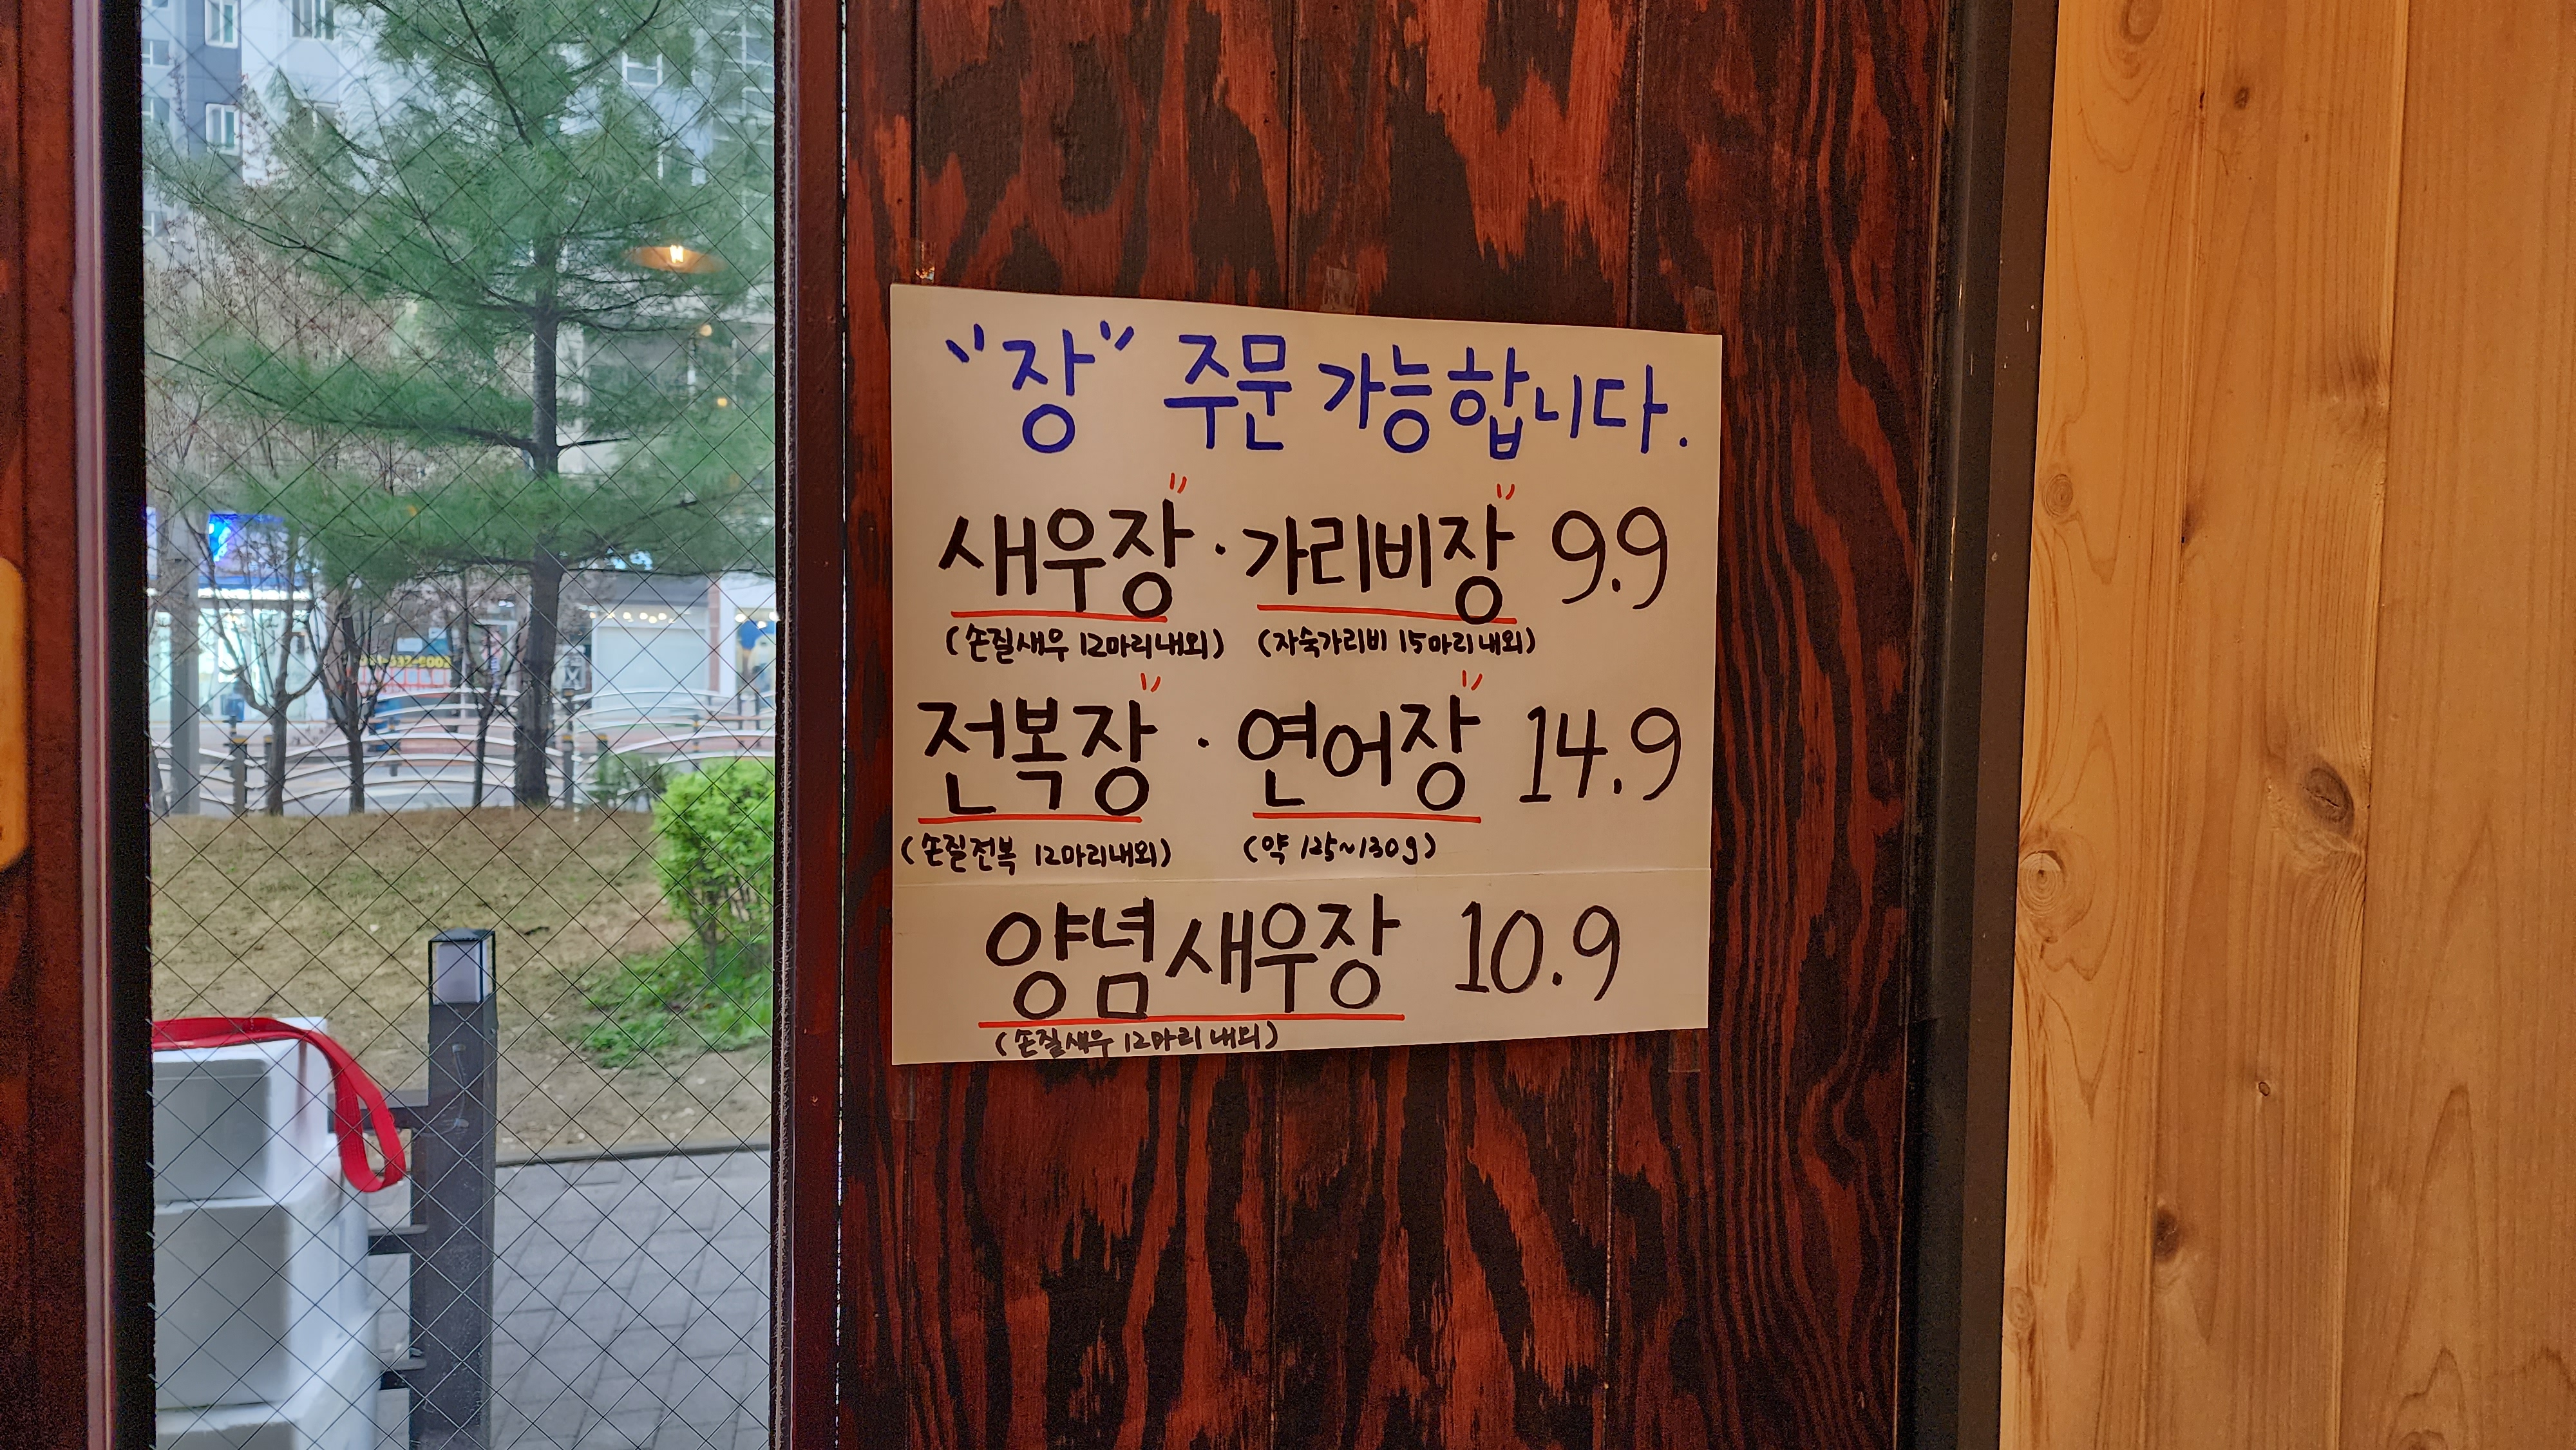 "장" 주문 가능합니다.
새우장 · 가리비장 9.9
(손질새우 12마리내외) (자숙가리비 15마리내외)
전복장 · 연어장 14.9
(손질전복 12마리내외) (약 125~130g)
양념새우장 10.9
(손질새우 12마리 내외)